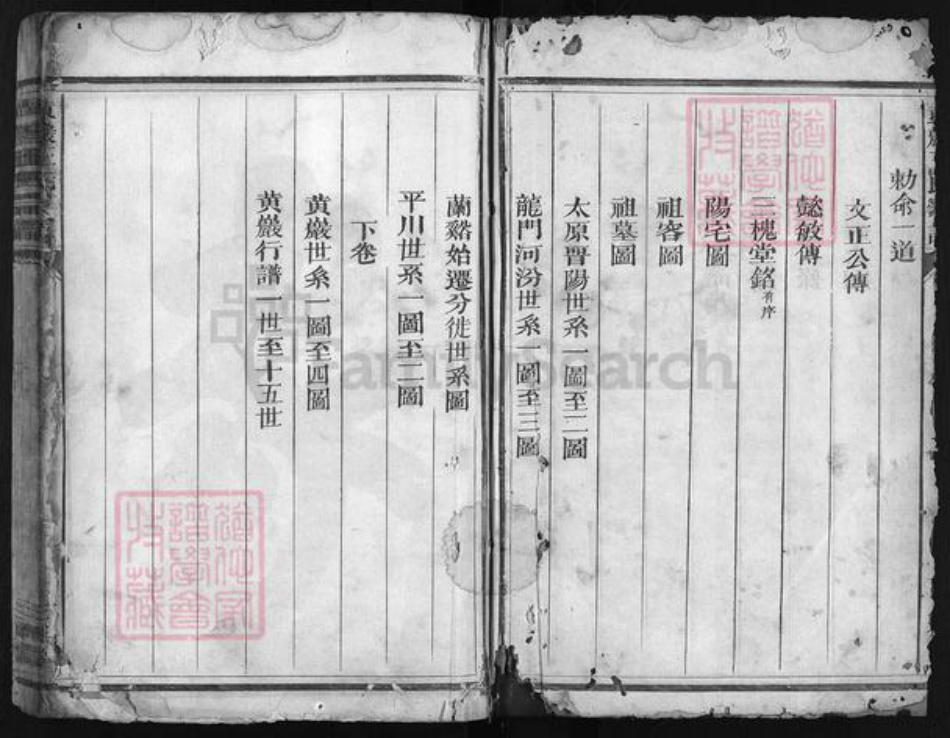 勅命一道
文正公傳
懿敏傳
三槐堂銘有序
陽宅圖
祖容圖
祖墓圖
太原晋陽世系一圖至二圖
龍門河汾世系一圖至三圖
蘭谿始遷分徙世系圖
平川世系一圖至二圖
下卷
黄巖世系一圖至四圖
黄巖行譜一世至十五世
FamilySearch